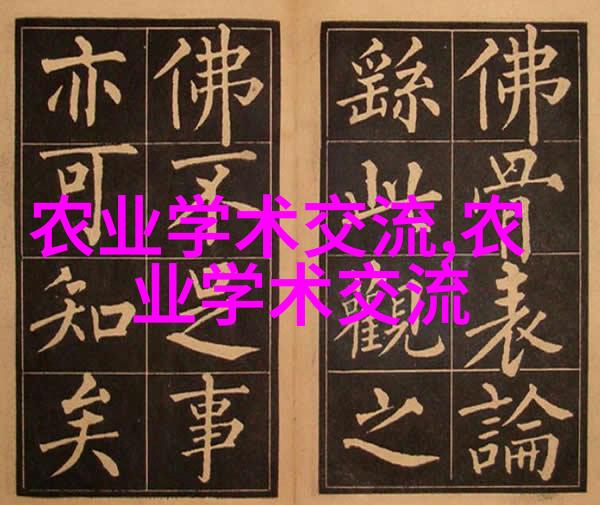 佛骨表論
繇此觀之
佛不足事
亦可知矣
农业学术交流,农
业学术交流